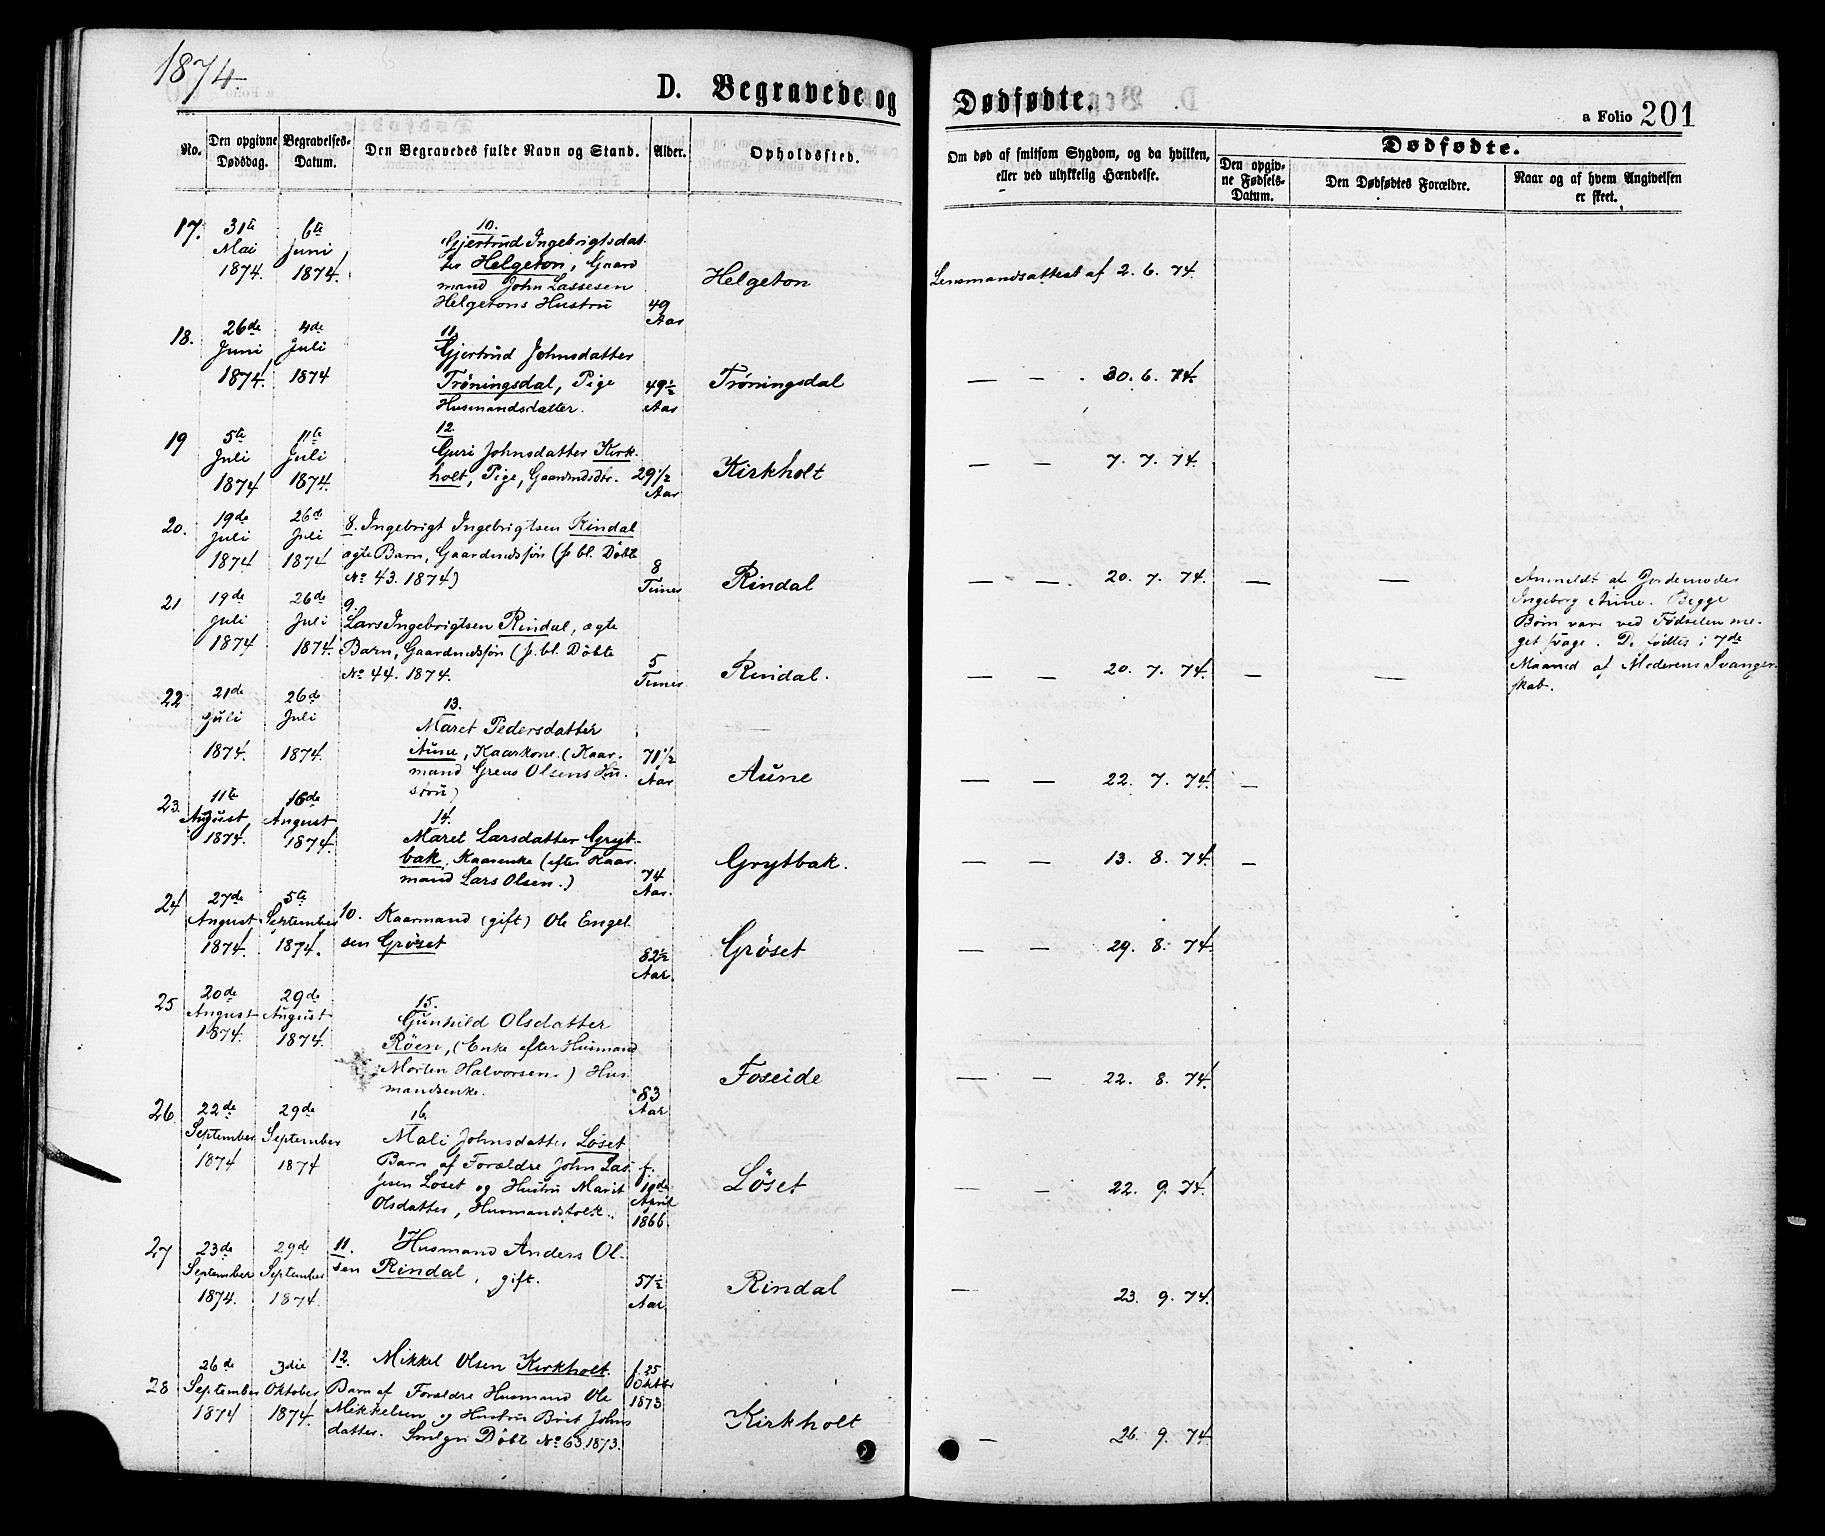 1874.
D. Begravede og Dødfødte.
a Folio 201
No.
Den opgivne Dødsdag.
Begravelses-Datum.
Den Begravedes fulde Navn og Stand.
Alder.
Opholdssted.
Om død af smitsom Sygdom, og da hvilken,
eller ved ulykkelig Hændelse.
Dødfødte.
Den opgiv-
ne Fødsels-
Datum.
Den Dødfødtes Forældre.
Naar og af hvem Angivelsen
er skeet.
17. 31te Mai 1874. 6te Juni 1874.
10.
Gjertrud Ingebrigtsdat-
ter Helgeton, Gaard
mand John Lassesen
Helgetons Hustru
49 Aar
Helgeton
Lensmandsattest af 2. 6. 74.
18. 26de Juni 1874. 4de Juli 1874
11.
Gjertrud Johnsdatter
Tröningsdal, Pige
Husmandsdatter.
49½ Aar
Tröningsdal
— — 30. 6. 74.
19 5te Juli 1874 11te Juli 1874.
12.
Guri Johnsdatter Kirk-
holt, Pige, Gaardmdsdtr.
29 1/2 Aar
Kirkholt
— — 7. 7. 74.
20. 19de Juli 1874 26de Juli 1874
8. Ingebrigt Ingebrigtsen Rindal
ægte Barn, Gaardmdssøn (se bl. Döbte
No 43. 1874)
8 Timer
Rindal
— — 20. 7. 74. — —
Anmeldt af Jordemoder
Ingeborg Aune. Begge
Börn vare ved Födselen me-
get svage. De födtes i 7de
Maaned af Moderens Svanger-
skab.
21 19de Juli 1874 26de Juli 1874.
9.
Lars Ingebrigtsen Rindal, ægte
Barn, Gaardmdssøn (se bl. Döbte
No 44. 1874.
5 Timer
Rindal.
— — 20. 7. 74. — —
22 21de Juli 1874. 26de Juli 1874.
13.
Maret Pedersdatter
Aune, Kaarkone. (Kaar-
mand Greus Olsens Hu-
stru)
71 1/2 Aar
Aune
— — 22. 7. 74. —
23. 11te August 1874. 16de August 1874.
14.
Maret Larsdatter Gryt-
bak, Kaarenke (efter Kaar-
mand Lars Olsen.)
74 Aar.
Grytbak.
— — 13. 8. 74. —
24 27de August 1874. 5te September 1874.
10. Kaarmand (gift) Ole Engel-
sen Gröset
82½ Aar.
Gröset
— — 29. 8. 74.
25 20de August 1874. 29de August 1874.
15.
Gunhild Olsdatter
Röen, (Enke efter Husmand
Morten Halvorsen.) Hus-
mandsenke.
83 Aar
Foseide
— — 22. 8. 74.
26. 22de September 1874 29de September 1874
16.
Mali Johnsdatter Löset
Barn af Forældre John Las-
sesen Löset og Hustru Marit
Olsdatter, Husmandsfolk.
f. 19de April 1866
Löset
— — 22. 9. 74.
27 23de September 1874. 29de September 1874.
11. 17 Husmand Anders Ol-
sen Rindal, gift.
57½ Aar
Rindal
— 23. 9. 74.
28 26de September 1874 3die Oktober 1874.
12. Mikkel Olsen Kirkholt.
Barn af Forældre Husmand Ole
Mikkelsen og Hustru Brit Johns
datter. Smlgn Döbte No 63. 1873.
f. 25 Oktbr 1873
Kirkholt
— 26. 9. 74.